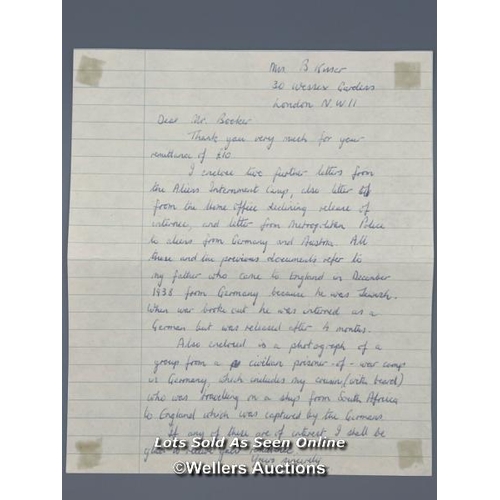 Mrs B
30 Wessex Gardens
London N.W.11
Dear Mr. Booker
Thank you very much for your
remittance of £10.
I enclose five further letters from
the Aliens Internment Camp, also letter
from the Home Office declining release of
internee, and letter from Metropolitan Police
to aliens from Germany and Austria. All
these and the previous documents refer to
my father who came to England in December
1938 from Germany because he was Jewish.
When war broke out he was interned as a
German but was released after 4 months.
Also enclosed is a photograph of a
group from a civilian prisoner-of-war camp
in Germany, which includes my cousin (with beard)
who was travelling on a ship from South Africa
to England which was captured by the Germans.
If any of these are of interest, I shall be
glad to receive your remittance
Yours sincerely
Lots Sold As Seen Online
©Wellers Auctions